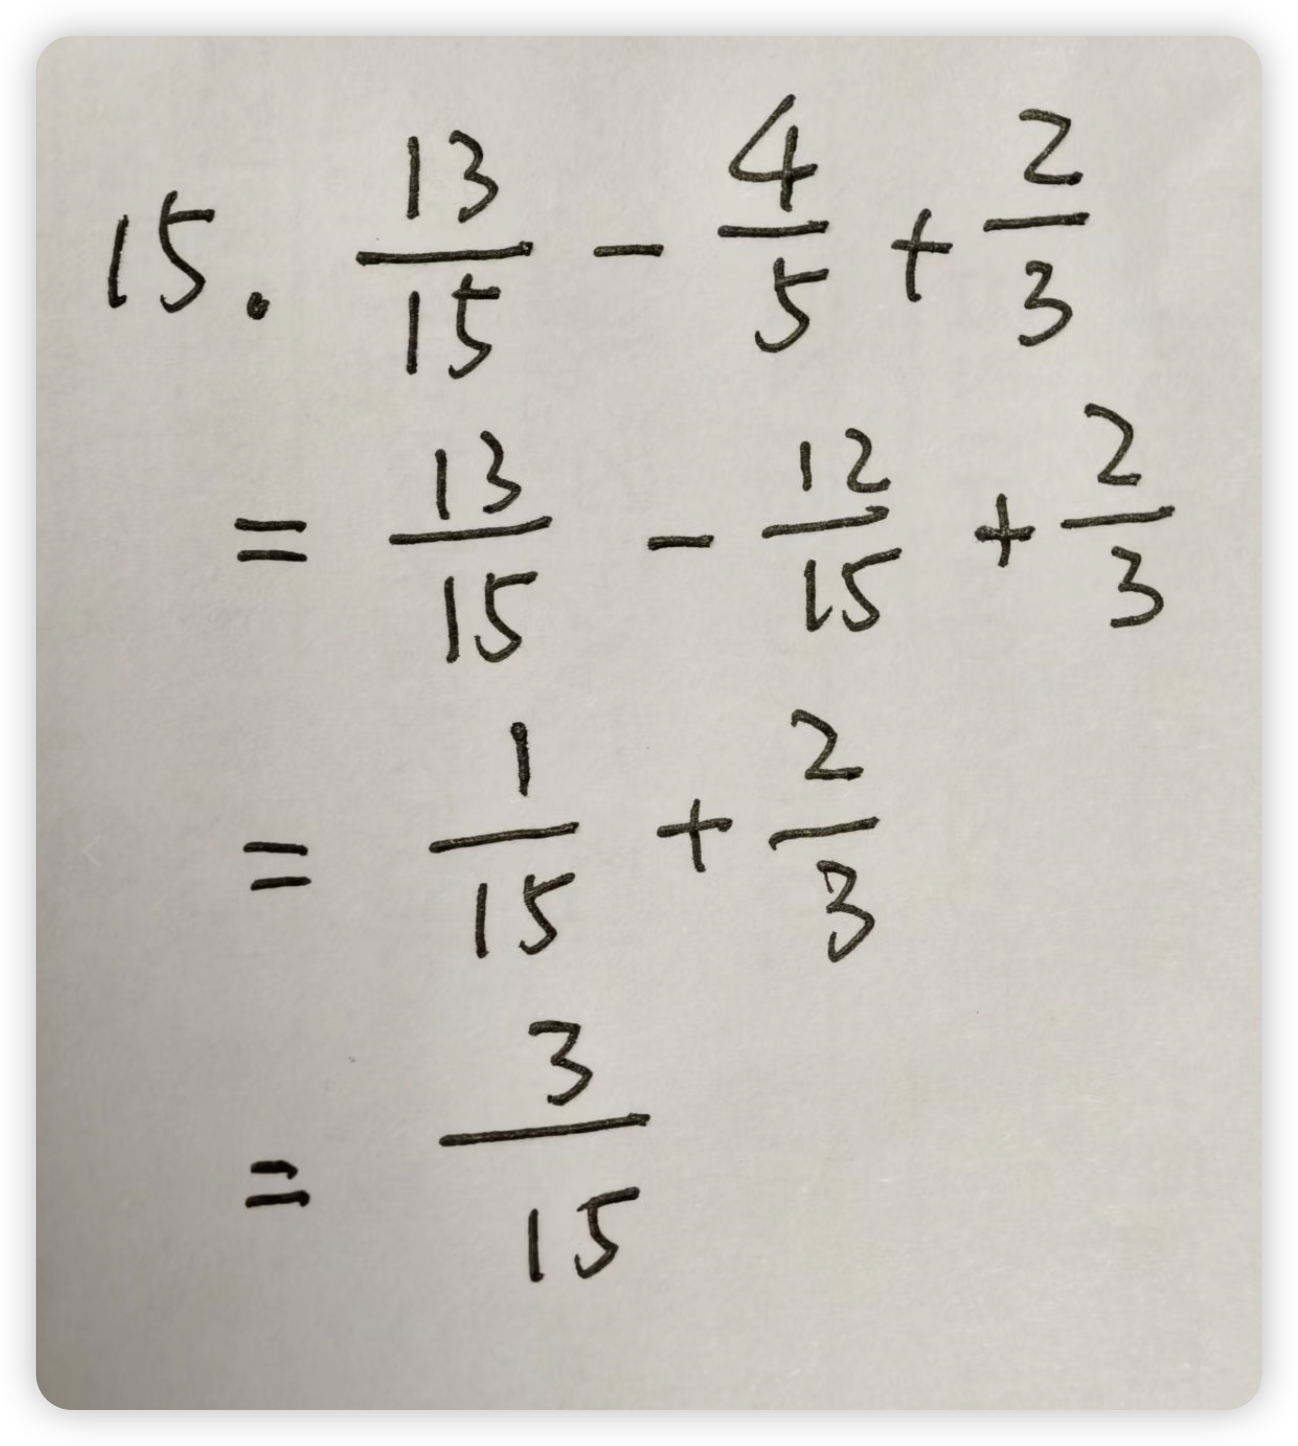 15. 13/15 - 4/5 + 2/3
= 13/15 - 12/15 + 2/3
= 1/15 + 2/3
= 3/15